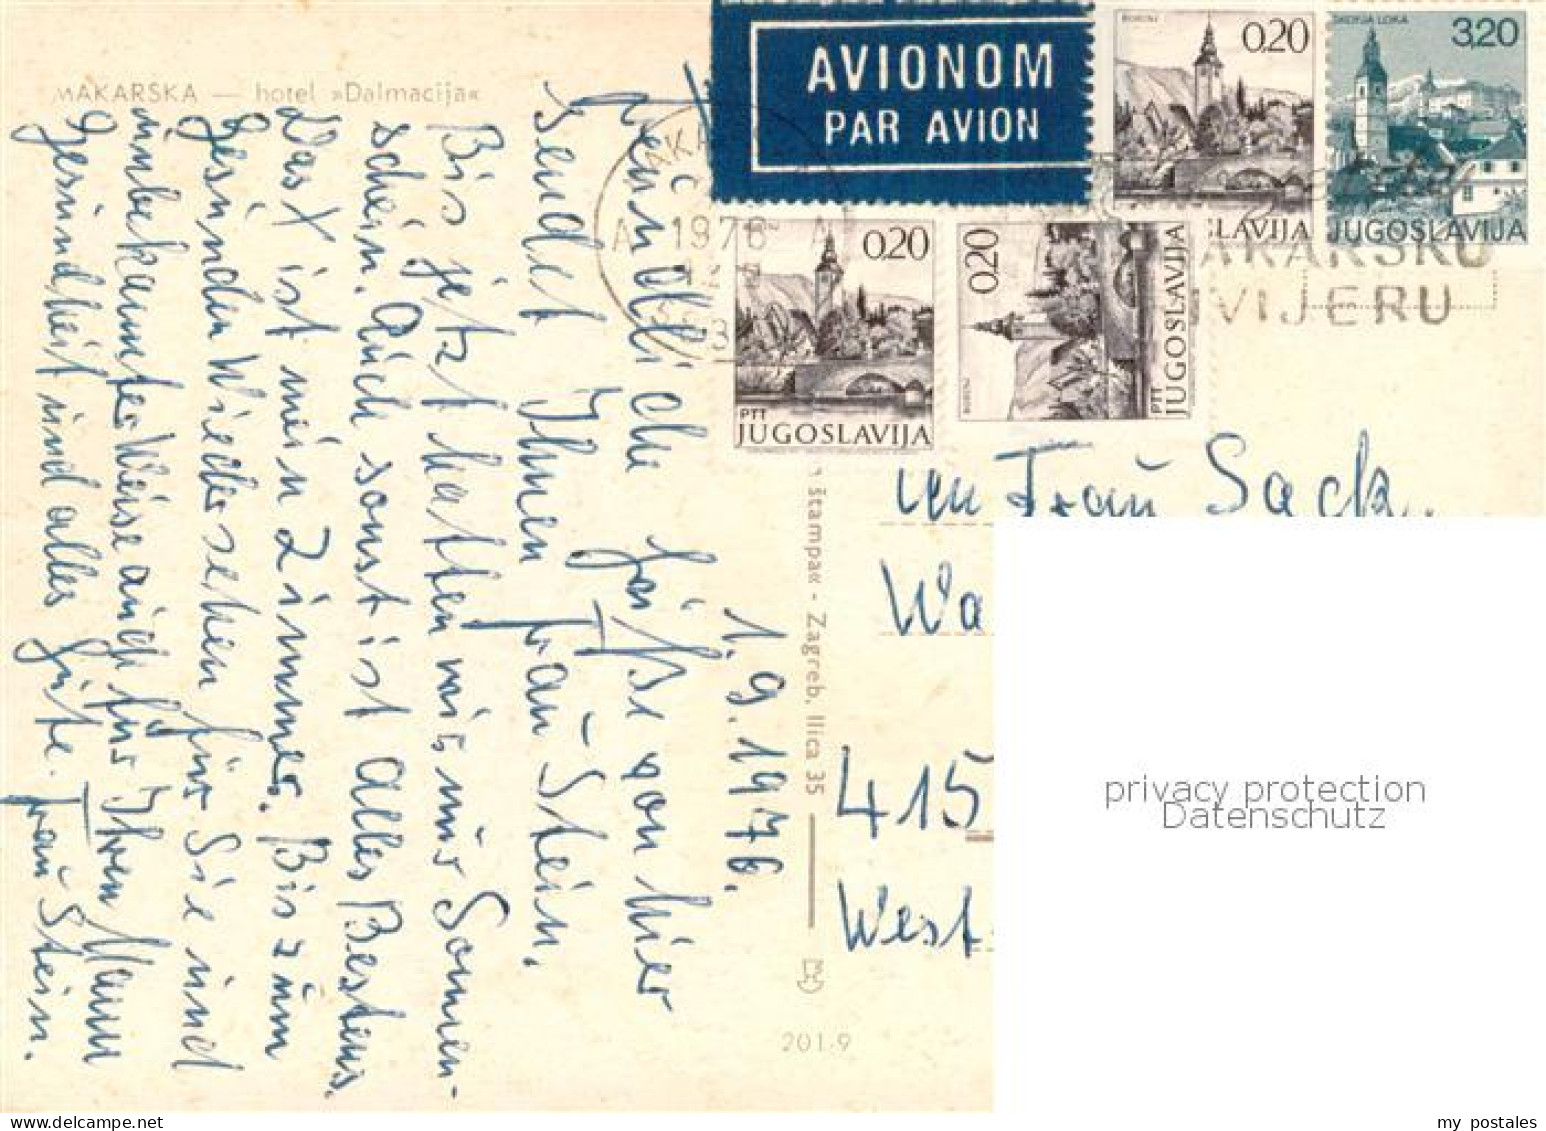 MAKARSKA — hotel »Dalmacija«
AVIONOM
PAR AVION
0,20
BOHINJ
JUGOSLAVIJA
3,20
ŠKOFJA LOKA
JUGOSLAVIJA
0,20
PTT
JUGOSLAVIJA
0,20
BOHINJ
PTT
JUGOSLAVIJA
1976
MAKARSKU
RIVIJERU
1.9.1976.
Freundliche Grüße von hier
sendet Ihnen Frau Stein.
Bis jetzt hatten wir nur Sonnen-
schein. Auch sonst ist alles Bestens.
Das X ist mein Zimmer. Bis zum
Gesunden Wiedersehen für Sie und
unbekannter Weise auch für Ihren Mann
Gesundheit und alles Gute. Frau Stein.
štampa« - Zagreb, Ilica 35
201-9
Frau Sack
Wa
415
West
privacy protection
Datenschutz
my postales